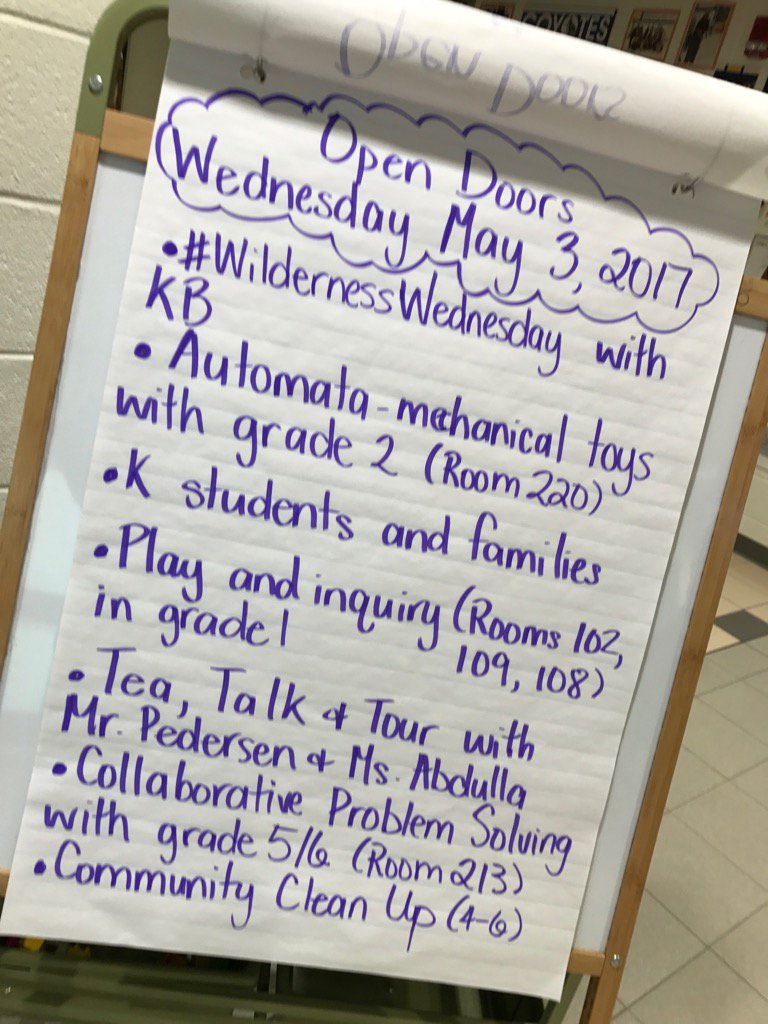 COYOTES
Open Doors
Open Doors
Wednesday May 3, 2017
•#WildernessWednesday with
KB
• Automata-mechanical toys
with grade 2 (Room 220)
•K students and families
•Play and inquiry (Rooms 102,
in grade 1 109, 108)
•Tea, Talk & Tour with
Mr. Pedersen & Ms. Abdulla
•Collaborative Problem Solving
with grade 5/6 (Room 213)
•Community Clean Up (4-6)